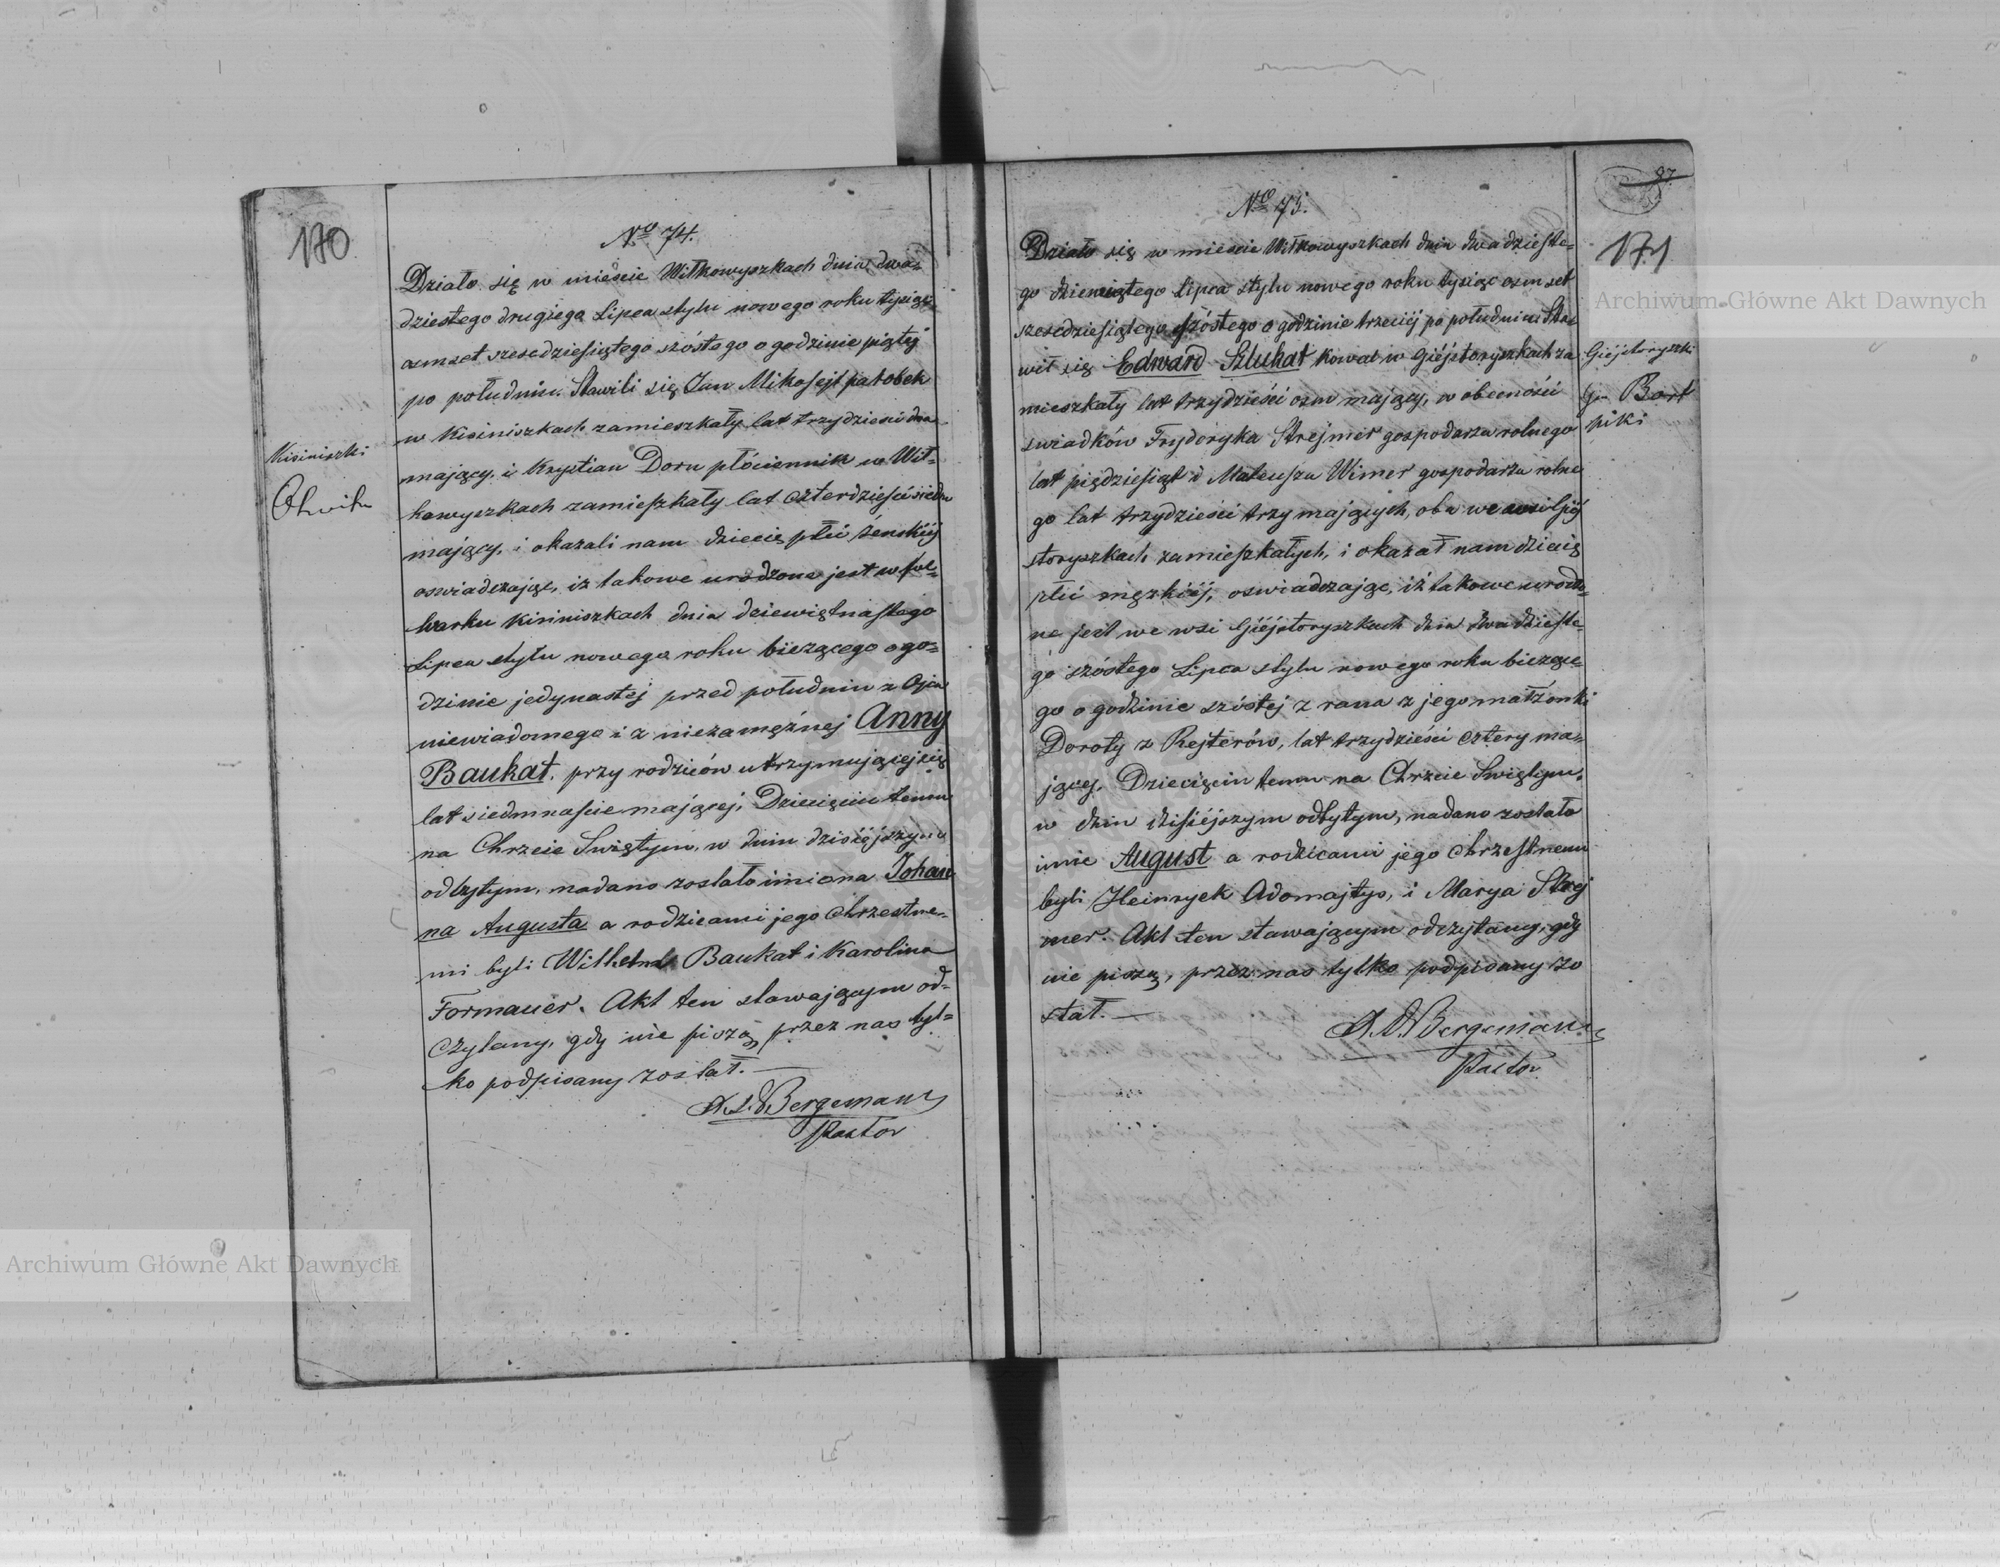 170
Nº 74.
Działo się w mieście Wiłkowyszkach dnia dwa-
dziestego drugiego Lipca stylu nowego roku tysiąc
osmset szesćdziesiątego szóstego o godzinie piątej
po południu. Stawili się Jan Mikosejt parobek
w Kisiniszkach zamieszkały lat trzydzieści dwa
mający, i Krystian Dorn płóciennik w Wił-
kowyszkach zamieszkały lat czterdzieści siedm
mający, i okazali nam dziecię płci żeńskiéj
oswiadczając, iż takowe urodzone jest w fol-
warku Kisiniszkach dnia dziewiętnastego
Lipca stylu nowego roku bieżącego o go-
dzinie jedynastéj przed południu z Ojca
niewiadomego i z niezamężnej Anny
Baukat, przy rodziców utrzymującej się
lat siedmnaście mającej. Dziecięciu temu
na Chrzcie Swiętym, w dniu dzisiéjszym
odbytym, nadano zostało imiona Johan-
na Augusta a rodzicami jego Chrzestne-
mi byli Wilhelm Baukat i Karolina
Formauer. Akt ten stawającym od-
czytany, gdy nie piszą, przez nas tyl-
ko podpisany został.
Bergemann
Pastor
Kisiniszki
Nº 75.
Działo się w mieście Wiłkowyszkach dnia dwadzieste-
go dziewiątego Lipca stylu nowego roku tysiąc osmset
szesćdziesiątego szóstego o godzinie trzeciéj po południu Sta-
wił się Edward Szlukat kowal w Giéjstoryszkach za
mieszkały lat trzydzieści osm mający, w obecności
swiadków Frydoryka Strejmer gospodarza rolnego
lat pięćdziesiąt i Mateusza Wimer gospodarza rolne
go lat trzydzieści trzy mających, oba we wsi Giéj
storyszkach zamieszkałych, i okazał nam dziecię
płci męzkiéj, oswiadczając, iż takowe urodzo-
ne jest we wsi Giéjstoryszkach dnia dwadzieste-
go szóstego Lipca stylu nowego roku bieżące-
go o godzinie szóstej z rana z jego małżonki
Doroty z Rejterów, lat trzydzieści cztery ma-
jącej. Dziecięciu temu na Chrzcie Swiętym,
w dniu dzisiéjszym odbytym, nadano zostało
imie August a rodzicami jego Chrzestnemi
byli Heinryck Adomajtys, i Marya Strej
mer. Akt ten stawającym odczytany, gdy
nie piszą, przez nas tylko podpisany zo
stał.
Bergemann
Pastor
87
171
Giéjstoryszki
Bart
piki
Archiwum Główne Akt Dawnych
Archiwum Główne Akt Dawnych